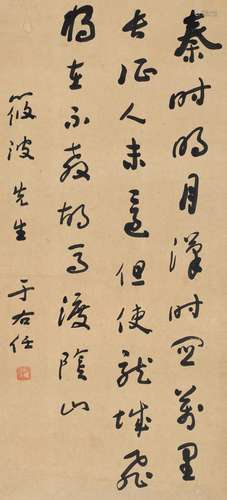 秦时明月汉时关万里
长征人未还但使龙城飞
将在不教胡马渡阴山
筱波先生
于右任